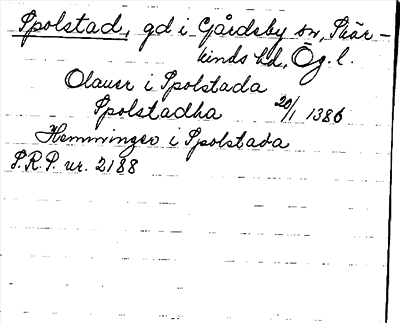 Spolstad, gd i Gårdeby sn, Skär-
kinds hd, Ög.l.
Olauer i Spolstada
Spolstadha 20/1 1386
Hemminger i Spolstada
S.R.P. nr. 2188